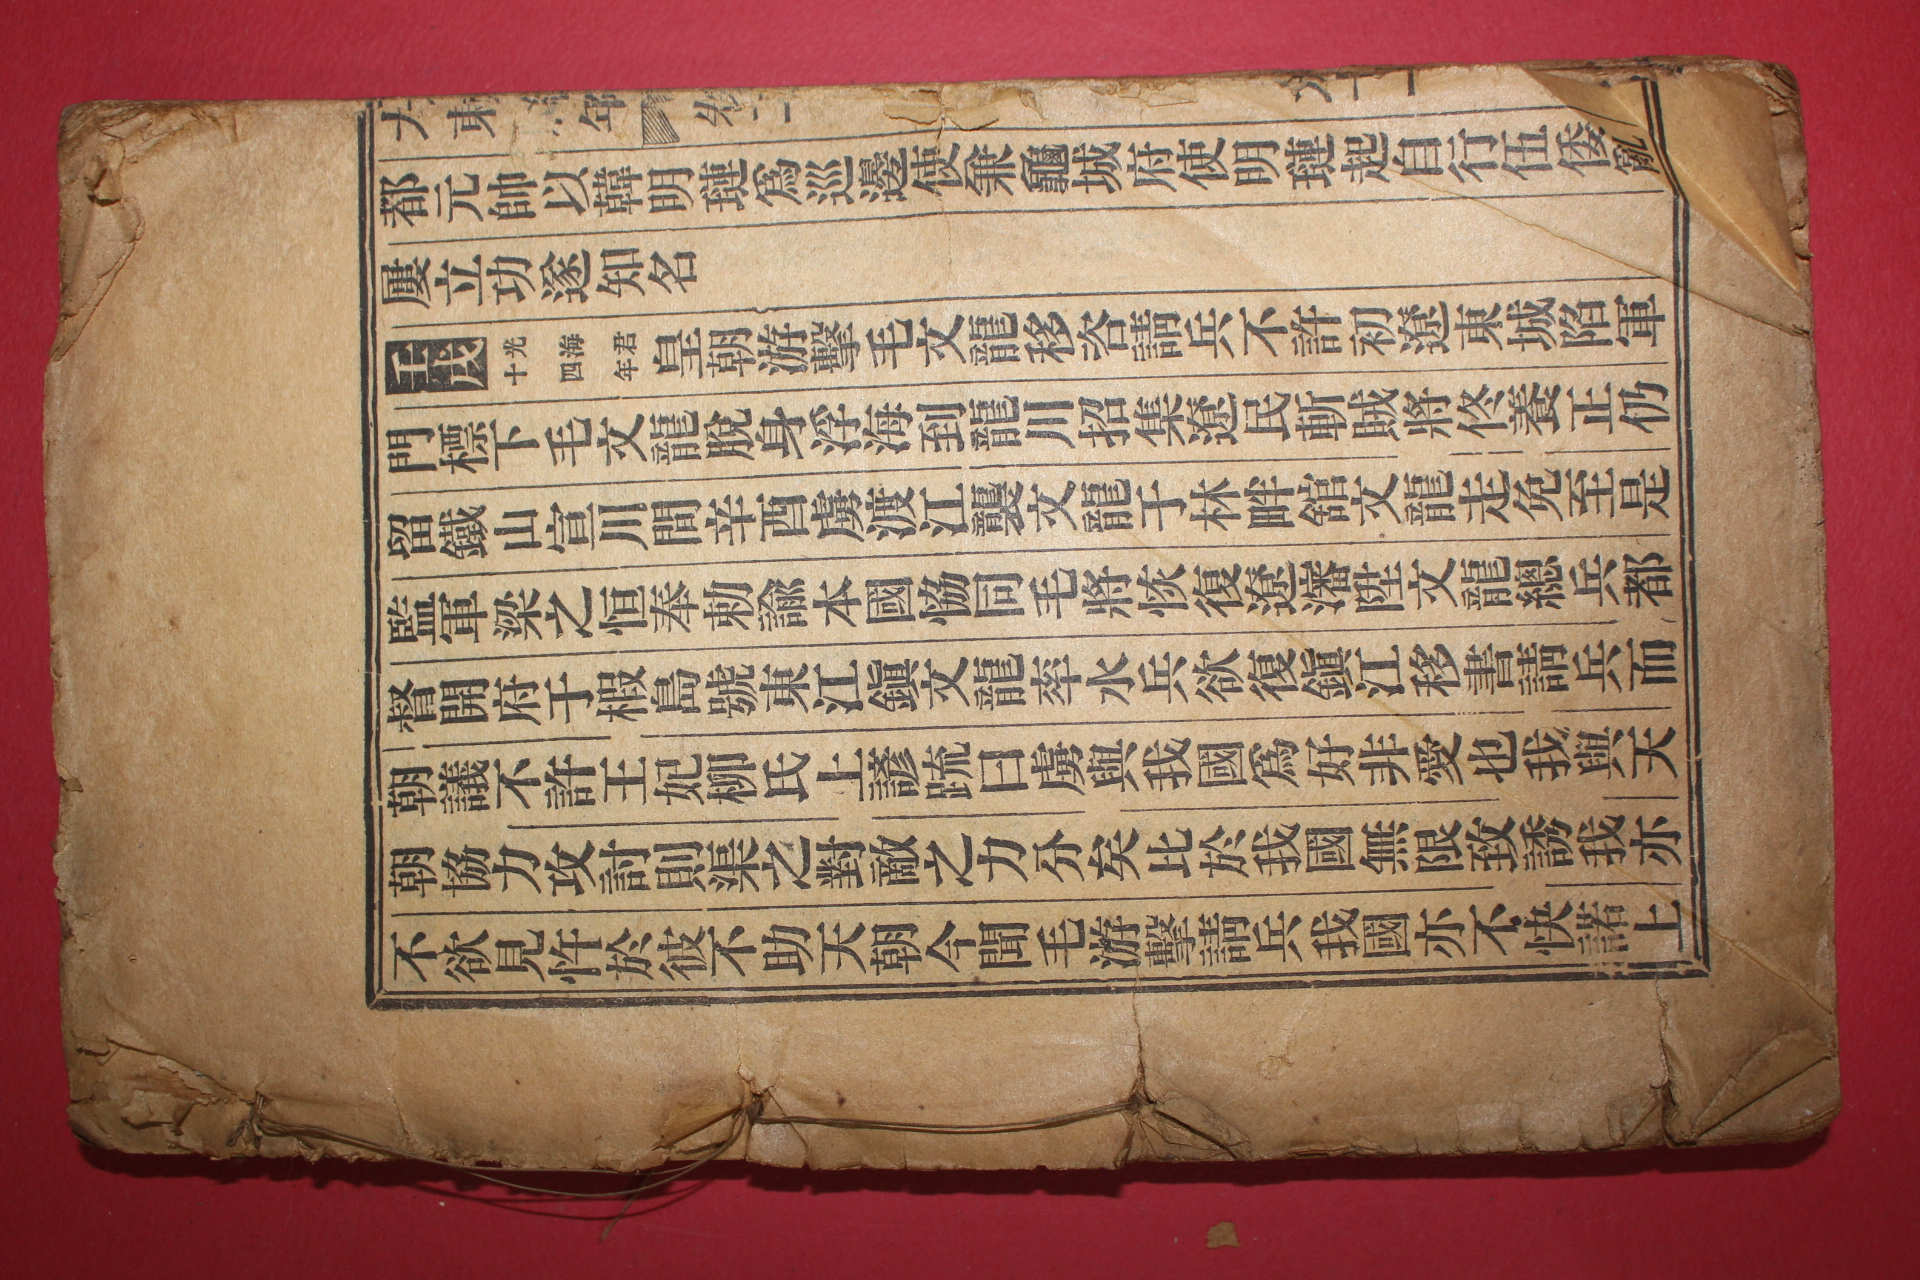 大東 年 卷二
都元帥以韓明璉爲巡邊使兼龜城府使明璉起自行伍倭亂
屢立功遂知名
壬戌 光海君十四年 皇朝游擊毛文龍移咨請兵不許初遼東城陷軍
門標下毛文龍脫身浮海到龍川招集遼民斬賊將佟養正仍
留鐵山宣川間辛酉虜渡江襲文龍于林畔舘文龍走免至是
監軍梁之恒奉勅諭本國恊同毛將恢復遼瀋陞文龍總兵都
督開府于椵島號東江鎭文龍率水兵欲復鎭江移書請兵而
朝議不許王妃柳氏上諺䟽曰虜與我國爲好非愛也我與天
朝協力攻討則渠之對敵之力分矣比於我國無限致誘我亦
不欲見忤於彼不助天朝今聞毛游擊請兵我國亦不快諾上